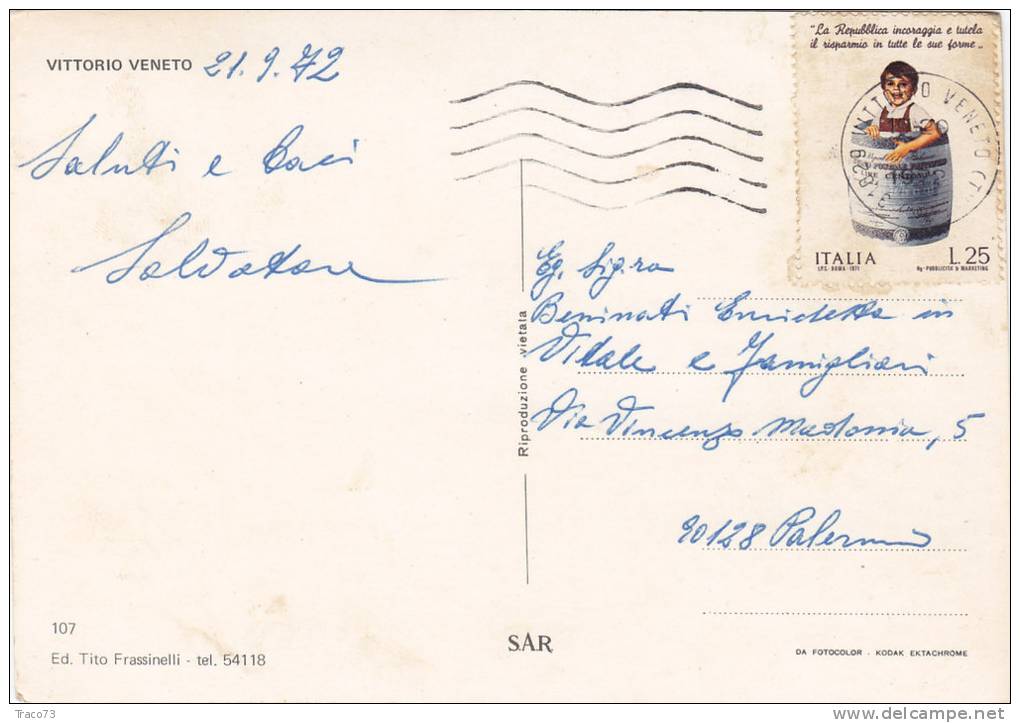 VITTORIO VENETO 21.9.72
Saluti e baci
Salvatore
"La Repubblica incoraggia e tutela
il risparmio in tutte le sue forme"
ITALIA L.25
I.P.S. - ROMA - 1971
PUBBLICITÀ & MARKETING
VITTORIO VENETO (TV)
Riproduzione vietata
Eg. Sig.ra
Beninati Enrichetta in
Vitale e Famigliari
Via Vincenzo Madonia, 5
90128 Palermo
107
Ed. Tito Frassinelli - tel. 54118
SAR
DA FOTOCOLOR - KODAK EKTACHROME
Traco73
www.delcampe.net